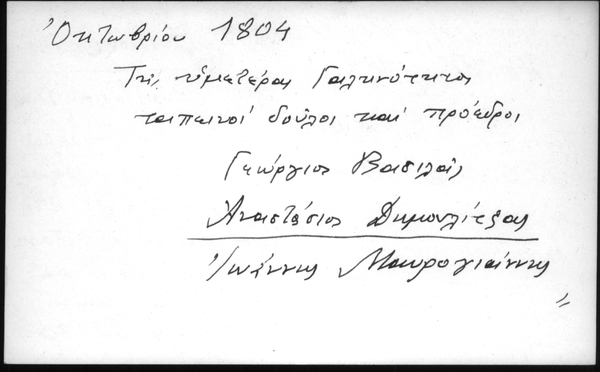 Ὀκτωβρίου 1804
Τῆς ὑμετέρας Γαληνότητος
ταπεινοί δοῦλοι καί πρόεδροι
Γεώργιος Βασιλᾶς
Ἀναστάσιος Δημουλίτζας
Ἰωάννης Μαυρογιάννης